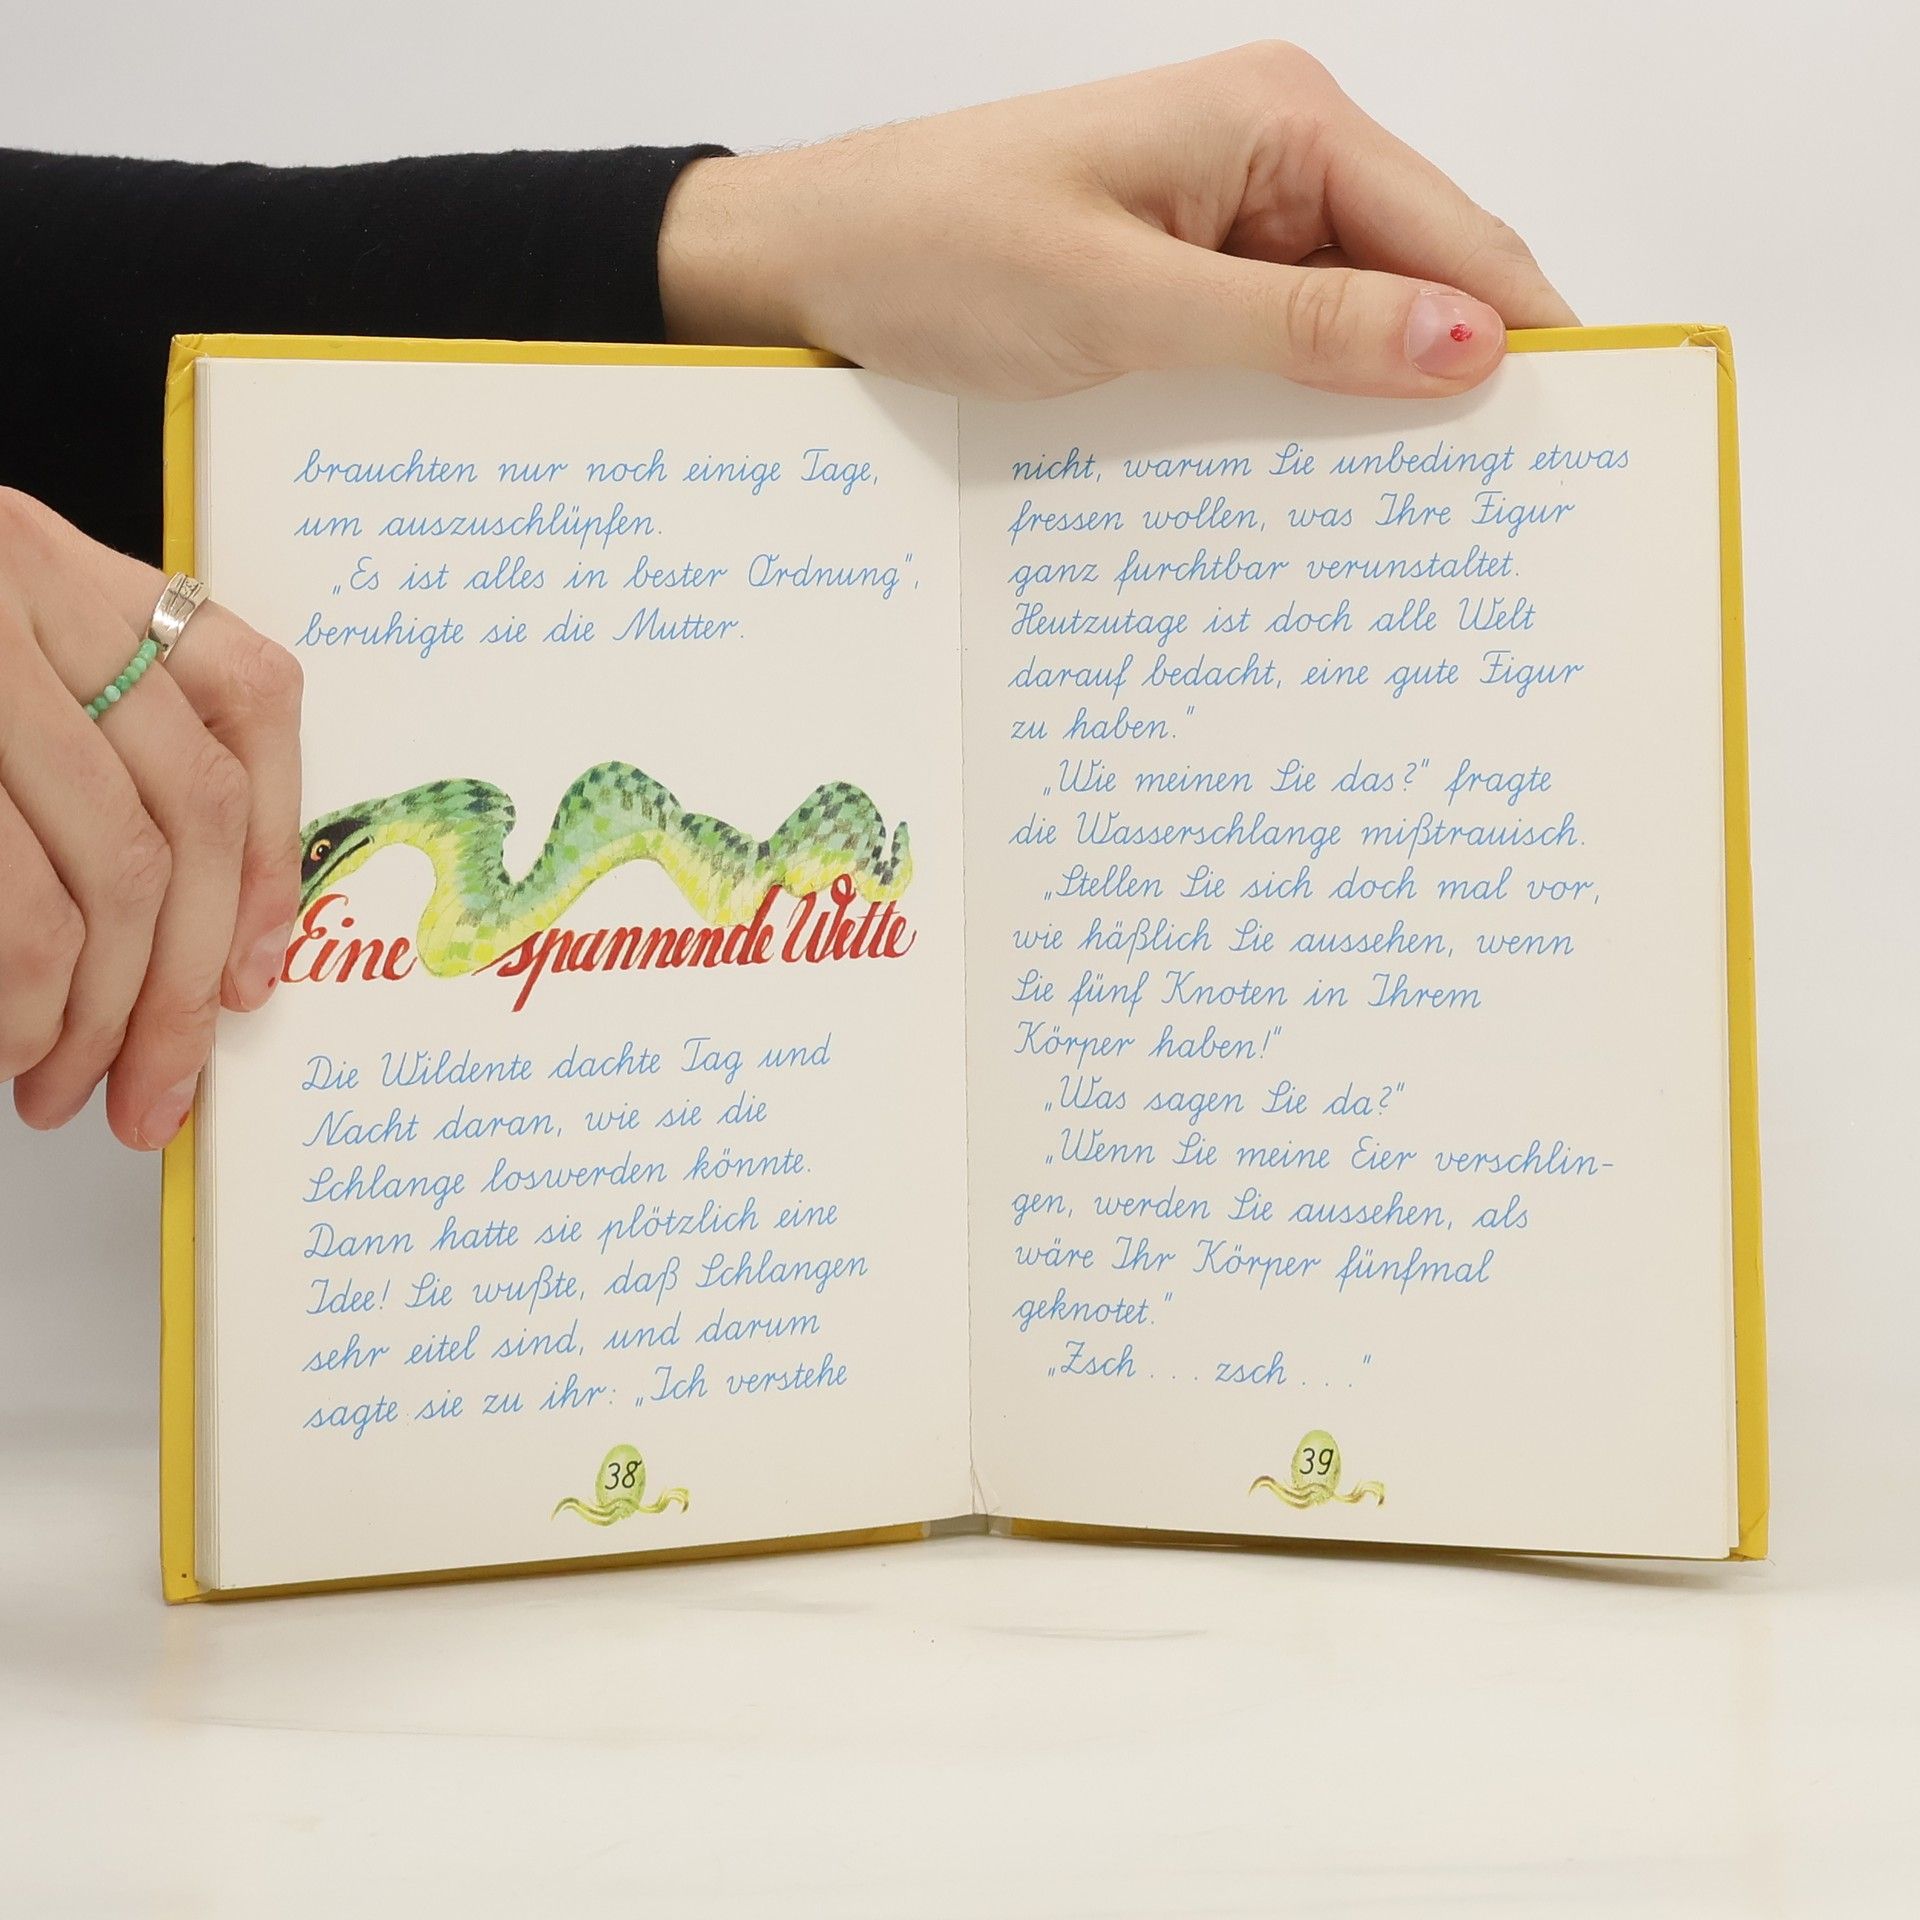 brauchten nur noch einige Tage,
um auszuschlüpfen.
„Es ist alles in bester Ordnung",
beruhigte sie die Mutter.
Eine spannende Wette
Die Wildente dachte Tag und
Nacht daran, wie sie die
Schlange loswerden könnte.
Dann hatte sie plötzlich eine
Idee! Sie wußte, daß Schlangen
sehr eitel sind, und darum
sagte sie zu ihr: „Ich verstehe
38
nicht, warum Sie unbedingt etwas
fressen wollen, was Ihre Figur
ganz furchtbar verunstaltet.
Heutzutage ist doch alle Welt
darauf bedacht, eine gute Figur
zu haben."
„Wie meinen Sie das?" fragte
die Wasserschlange mißtrauisch.
„Stellen Sie sich doch mal vor,
wie häßlich Sie aussehen, wenn
Sie fünf Knoten in Ihrem
Körper haben!"
„Was sagen Sie da?"
„Wenn Sie meine Eier verschlin-
gen, werden Sie aussehen, als
wäre Ihr Körper fünfmal
geknotet."
„Zsch . . . zsch . . ."
39